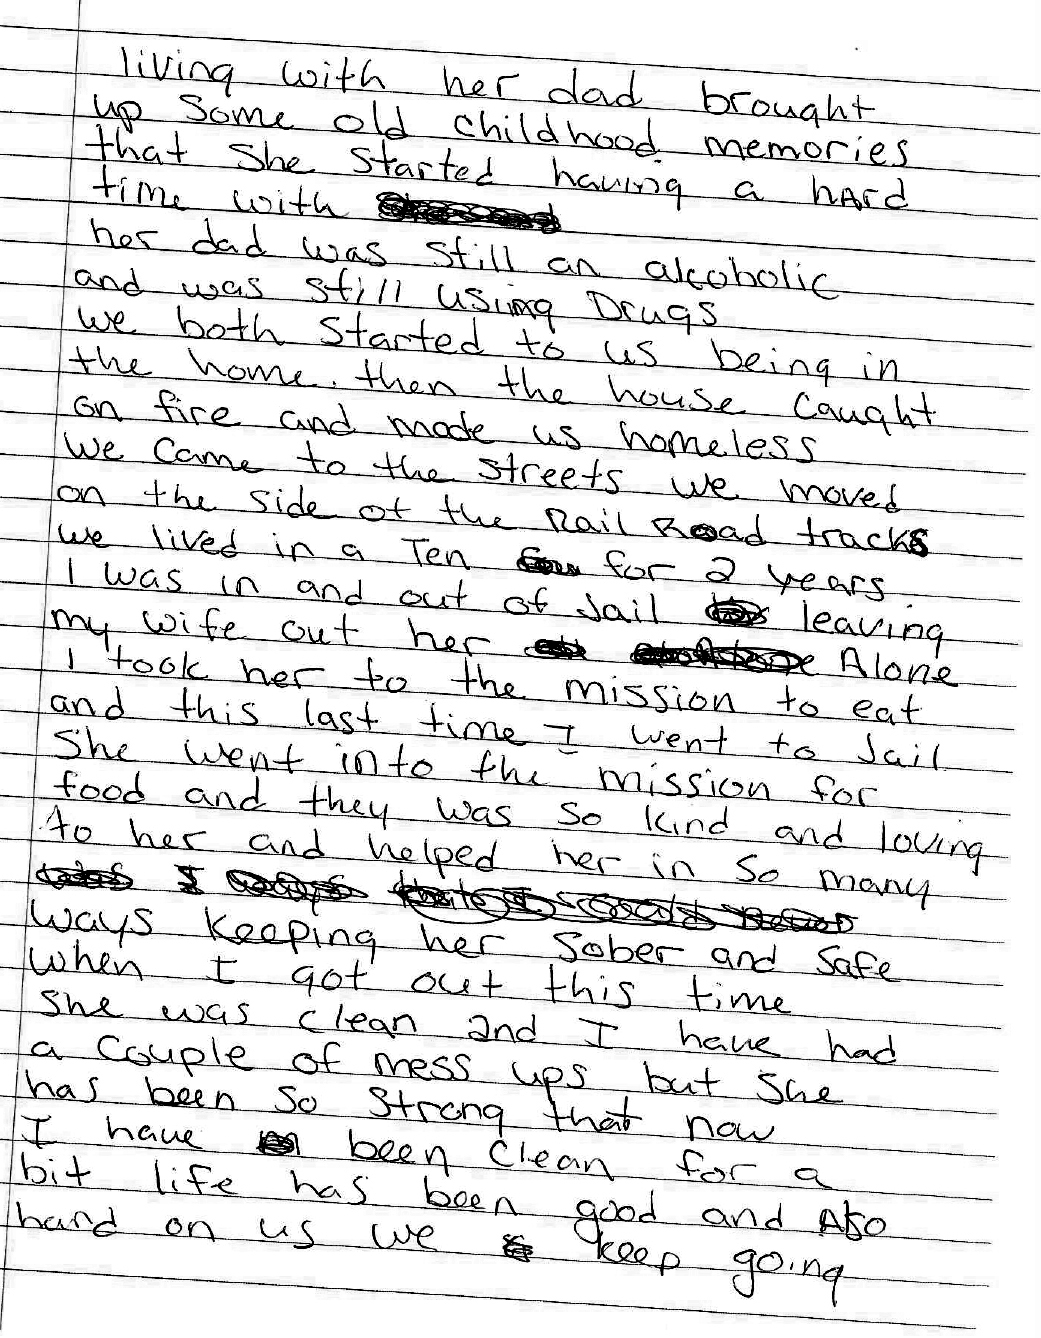 living with her dad brought
up some old childhood memories
that she started having a hARd
time with
her dad was still an alcoholic
and was still using Drugs
we both started to us being in
the home. then the house caught
on fire and made us homeless
we came to the streets we moved
on the side of the Rail Road tracks
we lived in a Ten for 2 years
I was in and out of Jail leaving
my wife out her Alone
I took her to the mission to eat
and this last time I went to Jail
She went into the mission for
food and they was so kind and loving
to her and helped her in so many
ways keeping her sober and safe
when I got out this time
she was clean and I have had
a couple of mess ups but she
has been so strong that now
I have been clean for a
bit life has been good and Also
hard on us we keep going